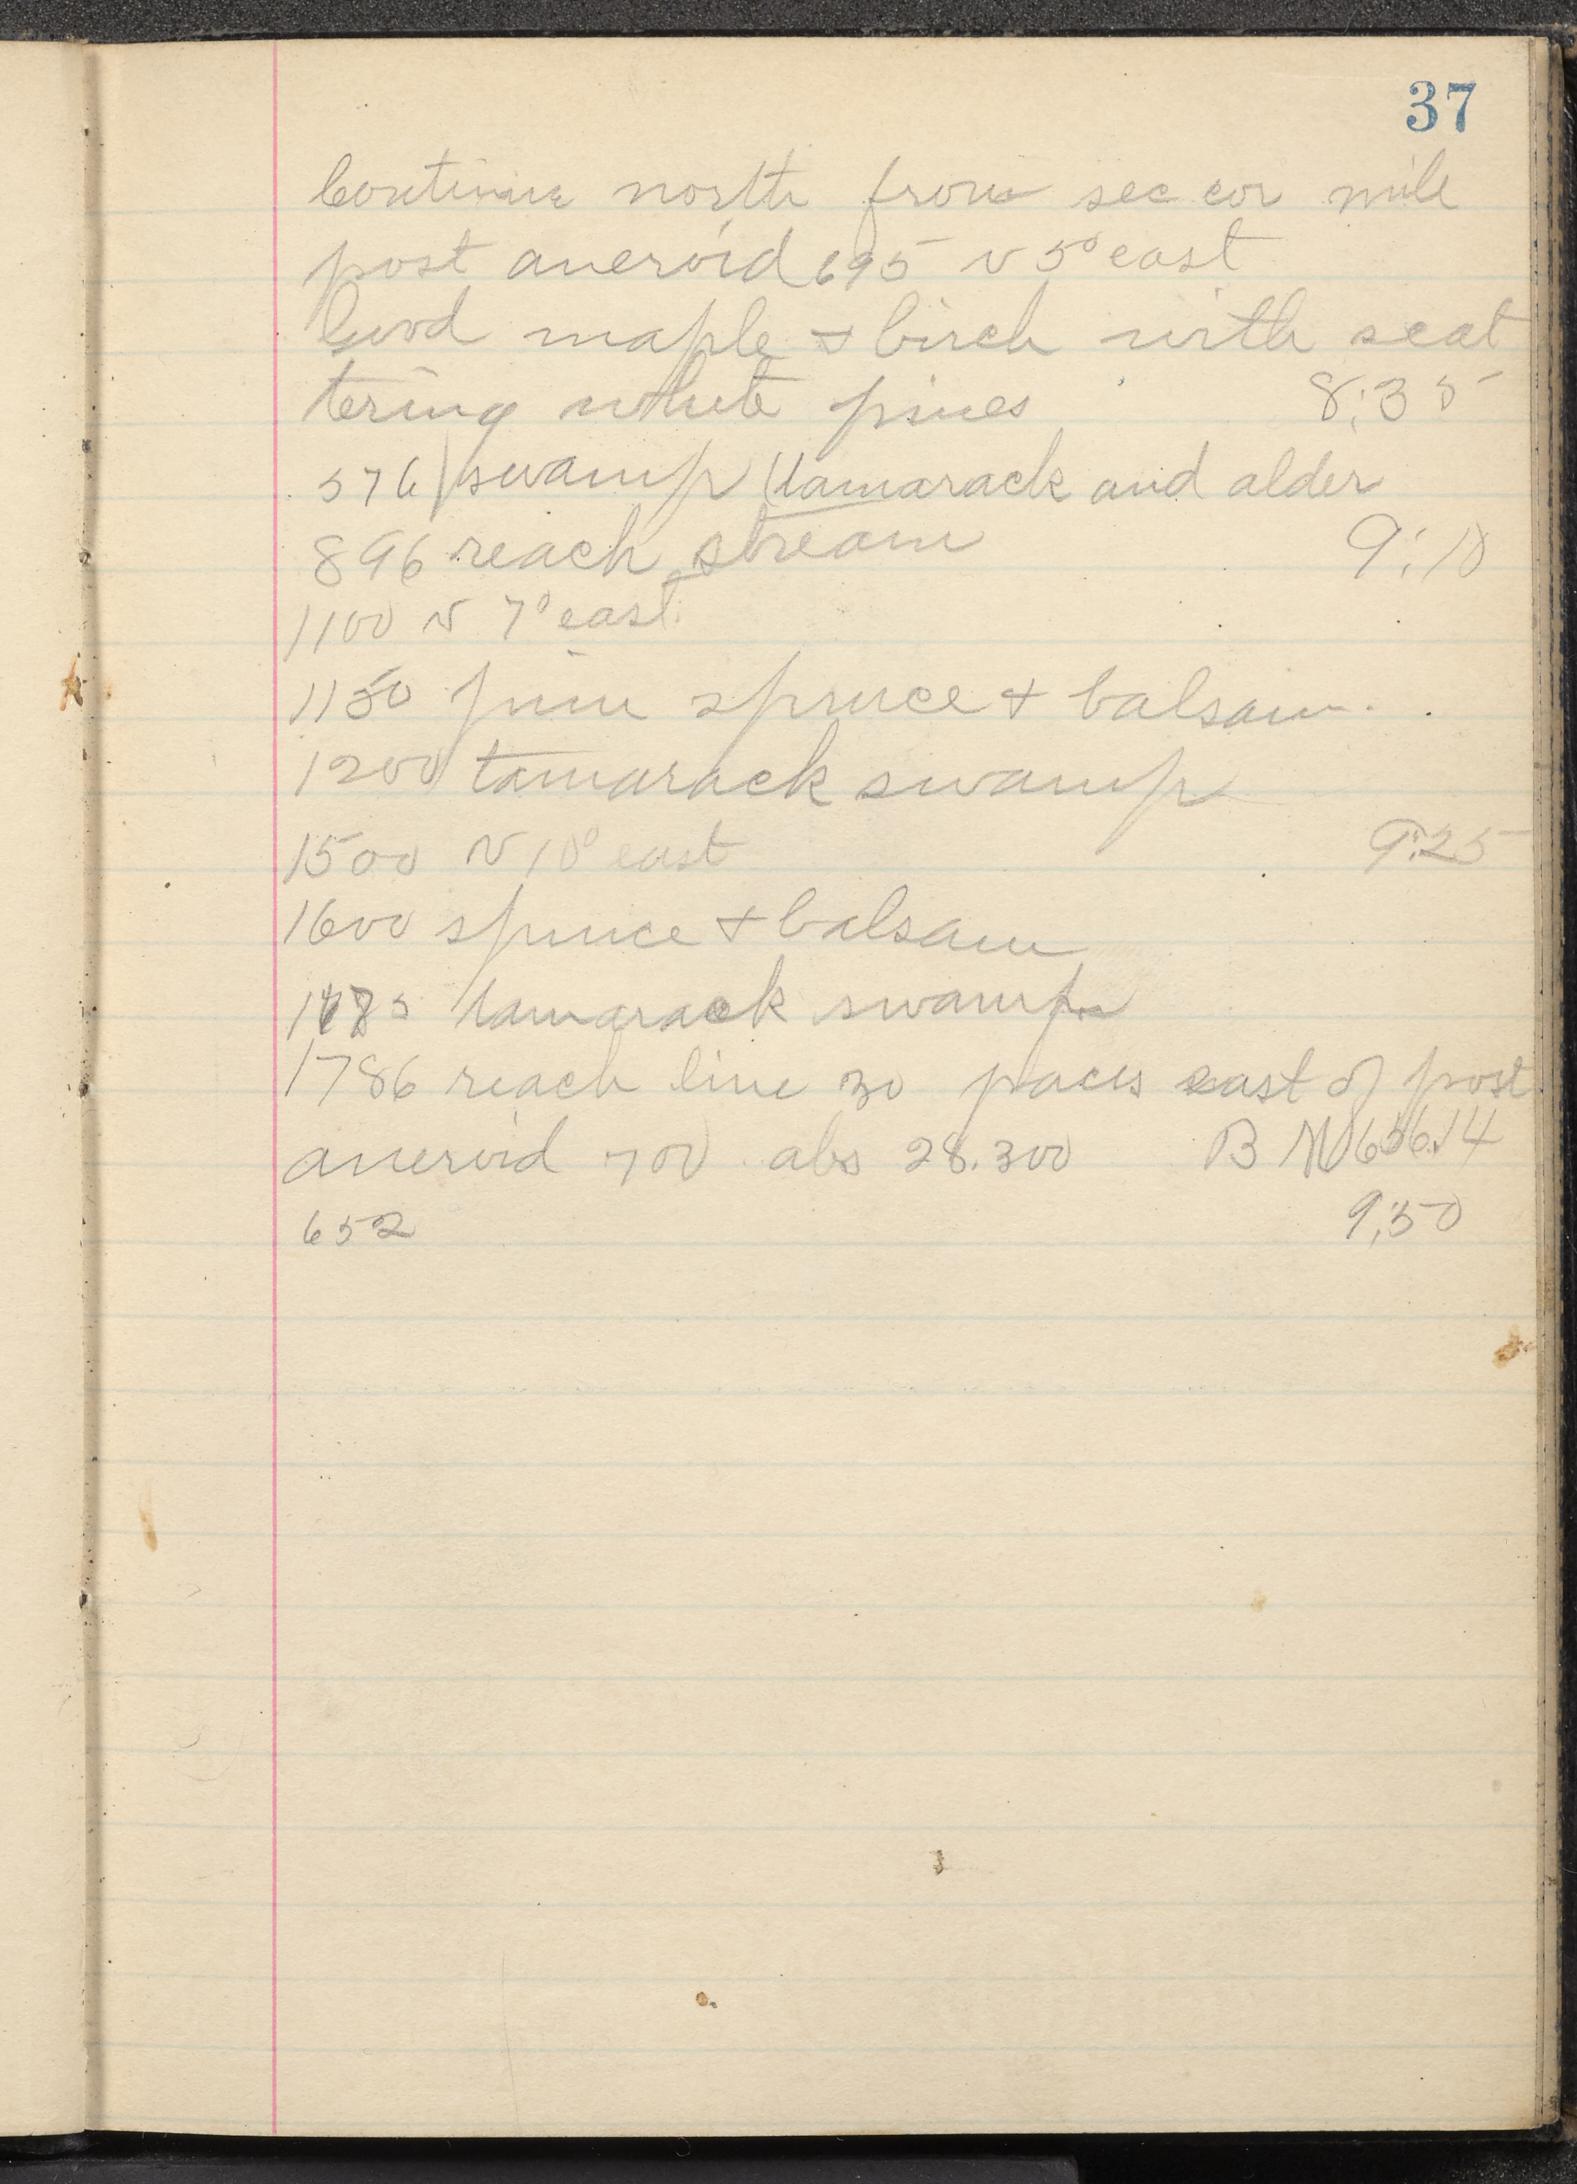 37
Continue north from sec cor mile
post aneroid 695 v 5° east
Good maple + birch with scat
tering white pines 8:35
576 swamp (tamarack and alder
896 reach stream 9:10
1100 v 7° east
1150 pine spruce + balsam.
1200 tamarack swamp
1500 v 10° east 9:25
1600 spruce + balsam
tamarack swamp
1786 reach line 30 paces east of post
aneroid 700 abs 28.300 B M 656.14
652 9:50